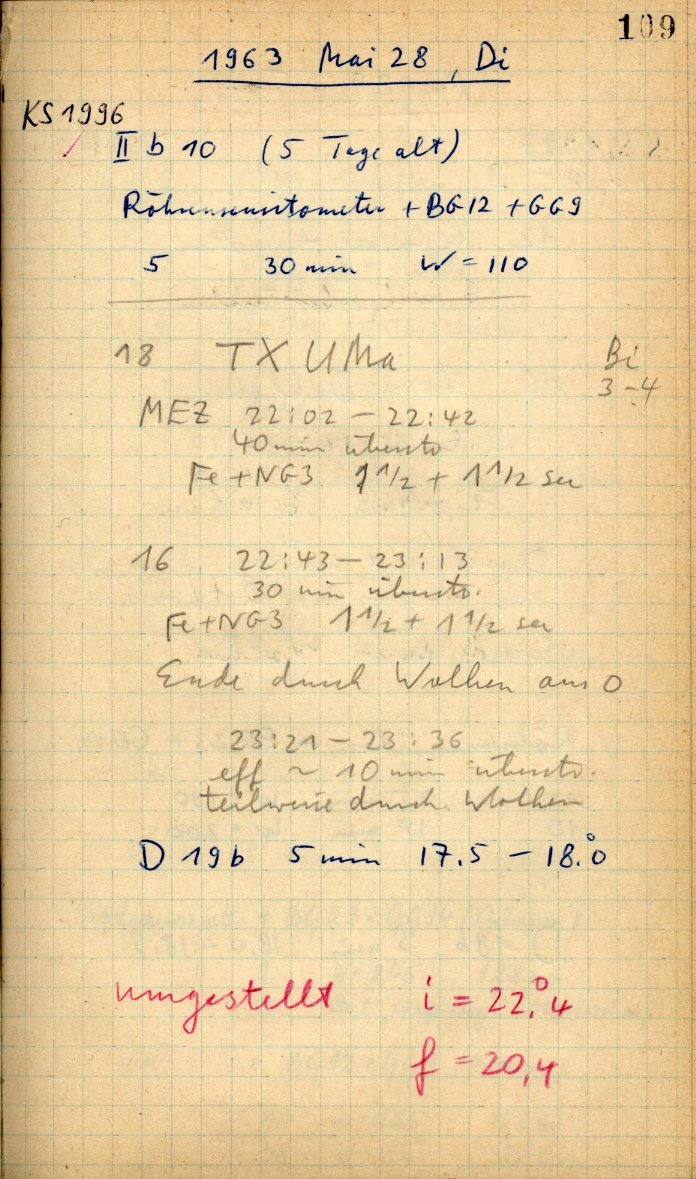 109
1963 Mai 28, Di
KS 1996
II b 10 (5 Tage alt)
Röhrensensitometer + BG12 + GG9
5 30 min W = 110
18 TX UMa Bi
3-4
MEZ 22:02 - 22:42
40 min überstr.
Fe + NG3 1 1/2 + 1 1/2 sec
16 22:43 - 23:13
30 min überstr.
Fe + NG3 1 1/2 + 1 1/2 sec
Ende durch Wolken aus 0
23:21 - 23:36
eff ~ 10 min überstr.
teilweise durch Wolken
D 19b 5 min 17.5 - 18.°0
umgestellt i = 22,°4
f = 20,4